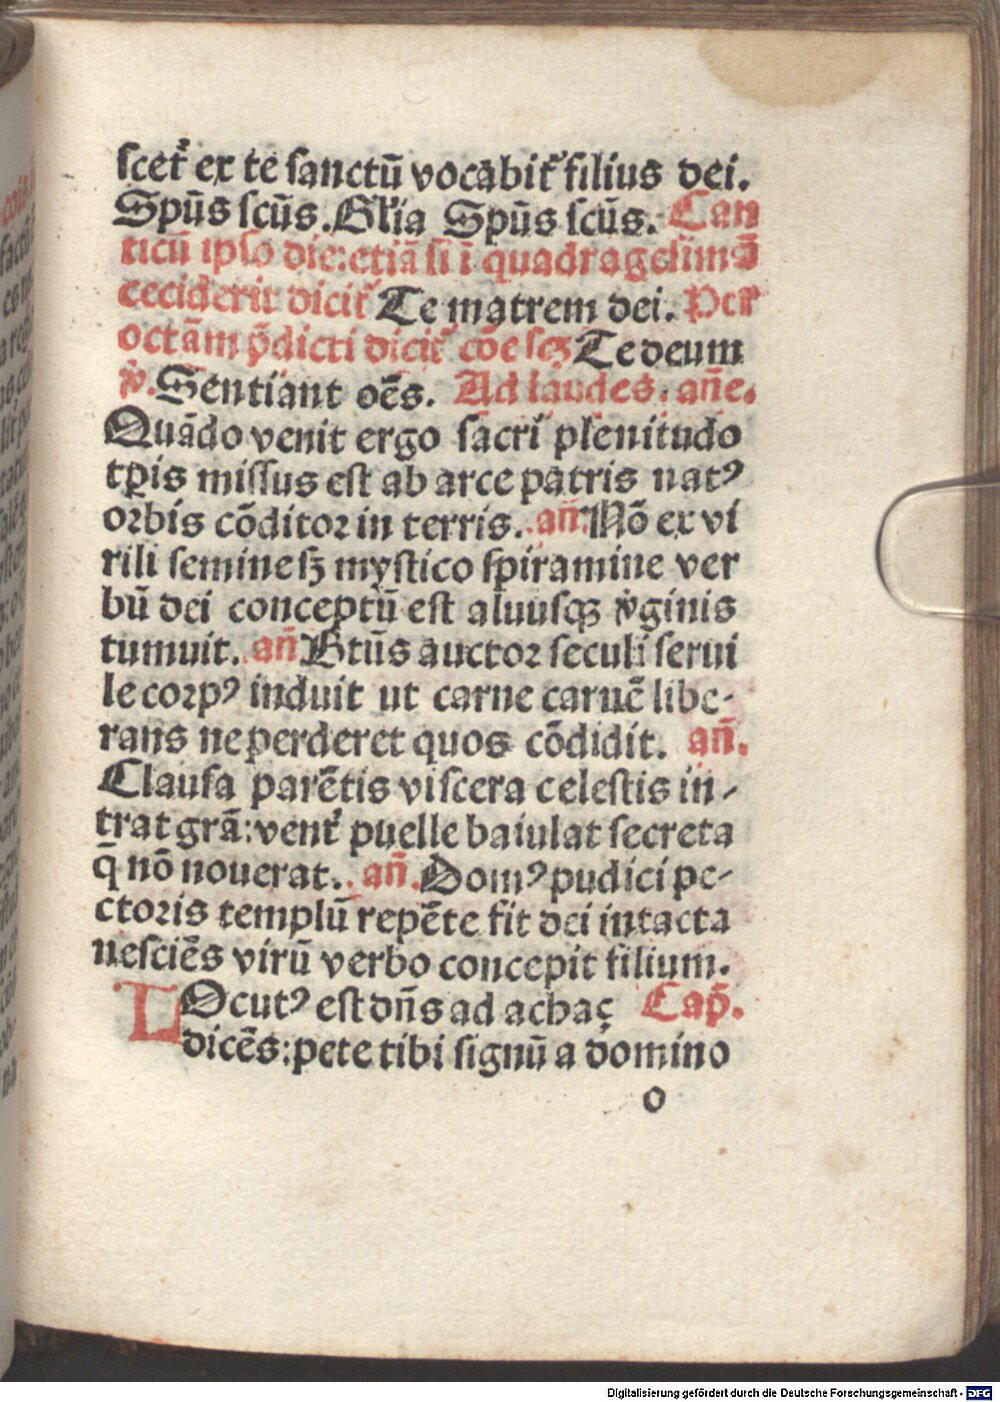 ſcet᷑ ex te ſanctū vocabit᷑ filius dei.
Spūs ſcūs. Glīa Spūs ſcūs. Can
ticū ipſo die: etiā ſi ī quadrageſimā
ceciderit dicit᷑ Te matrem dei. Per
octām p̄dicti dicit᷑ cōe ſcꝫ Te deum
v̄. Sentiant oēs. Ad laudes. añe.
Quādo venit ergo ſacri plenitudo
tꝑis miſſus eſt ab arce patris natꝰ
orbis cōditor in terris. añ. Nō ex vi
rili ſemine ſꝫ myſtico ſpiramine ver
bū dei conceptū eſt aluuſqꝫ v̄ginis
tumuit. añ Btūs auctor ſeculi ſerui
le corpꝰ induit ut carne carnē libe-
rans ne perderet quos cōdidit. añ.
Clauſa parētis viſcera celeſtis in-
trat grā: vent᷑ puelle baiulat ſecreta
q̄ nō nouerat. añ. Domꝰ pudici pe-
ctoris templū repēte fit dei intacta
neſciēs virū verbo concepit filium.
LOcutꝰ eſt dñs ad achaç Cap̄.
dicēs: pete tibi ſignū a domino
o
Digitalisierung gefördert durch die Deutsche Forschungsgemeinschaft - DFG